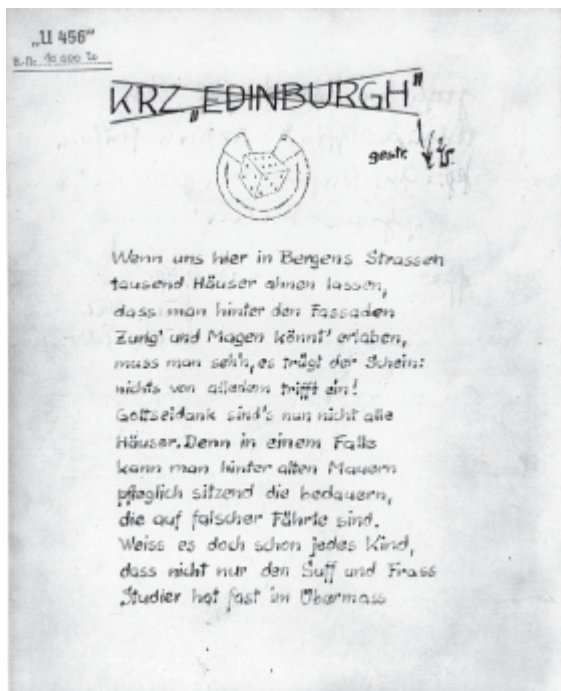 „U 456“
B.-Nr. 10 000 20
KRZ „EDINBURGH“
gestr.
Wenn uns hier in Bergens Strassen
tausend Häuser ahnen lassen,
dass man hinter den Fassaden
Zung' und Magen könnt' erlaben,
muss man seh'n, es trügt der Schein:
nichts von alledem trifft ein!
Gottseidank sind's nun nicht alle
Häuser. Denn in einem Falle
kann man hinter alten Mauern
pfleglich sitzend die bedauern,
die auf falscher Fährte sind.
Weiss es doch schon jedes Kind,
dass nicht nur den Suff und Frass
Studier hat fast im Übermass